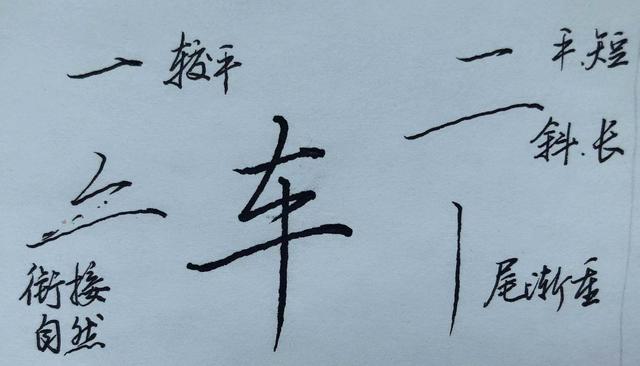 较平
平.短
斜.长
车
衔接
自然
尾渐重